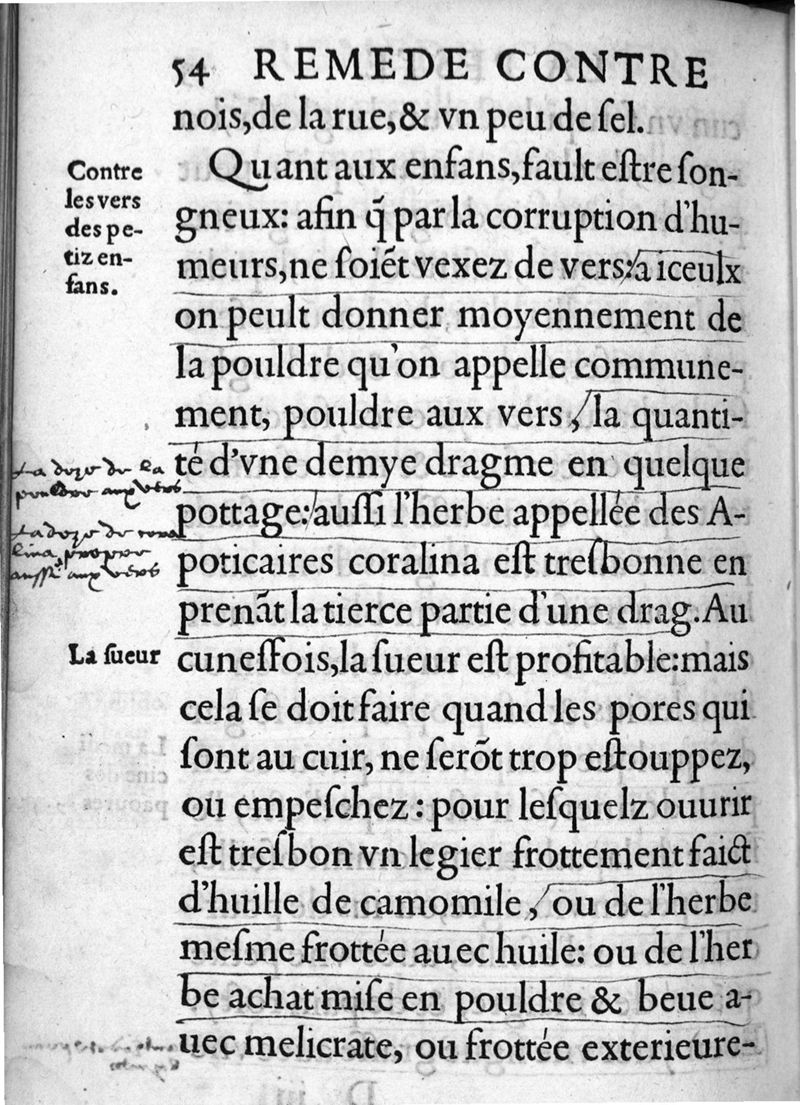 54 REMEDE CONTRE
nois, de la rue, & vn peu de ſel.
Contre
les vers
des pe-
tiz en-
fans.
Quant aux enfans, fault eſtre ſon-
gneux: afin q̃ par la corruption d'hu-
meurs, ne ſoiẽt vexez de vers: a iceulx
on peult donner moyennement de
la pouldre qu'on appelle commune-
ment, pouldre aux vers, la quanti-
té d'vne demye dragme en quelque
pottage: auſſi l'herbe appellée des A-
poticaires coralina eſt treſbonne en
prenãt la tierce partie d'une drag. Au
La doze de la
pouldre aux vers
La doze de cora
lina, propre
auſſi aux vers
La ſueur
cuneſfois, la ſueur eſt profitable: mais
cela ſe doit faire quand les pores qui
ſont au cuir, ne ſerõt trop eſtouppez,
ou empeſchez: pour leſquelz ouurir
eſt treſbon vn legier frottement faict
d'huille de camomile, ou de l'herbe
meſme frottée auec huile: ou de l'her
be achat miſe en pouldre & beue a-
uec melicrate, ou frottée exterieure-